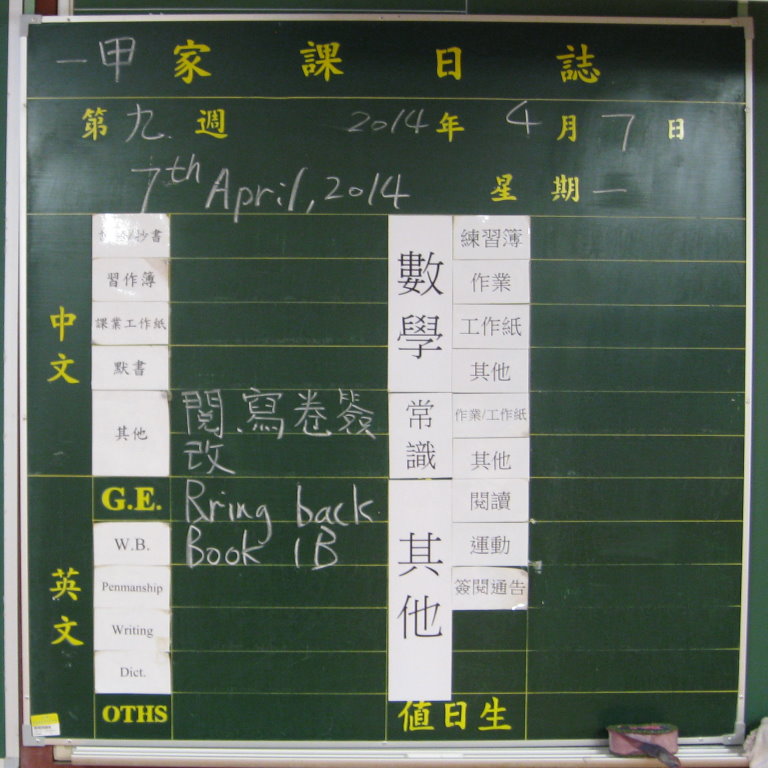 一甲 家課日誌
第九週 2014年4月7日
7th April, 2014 星期一
中文
抄書
習作簿
課業工作紙
默書
其他 閱.寫卷簽
改
英文
G.E. Rring back
W.B. Book 1B
Penmanship
Writing
Dict.
OTHS
數學
練習簿
作業
工作紙
其他
常識
作業/工作紙
其他
其他
閱讀
運動
簽閱通告
值日生